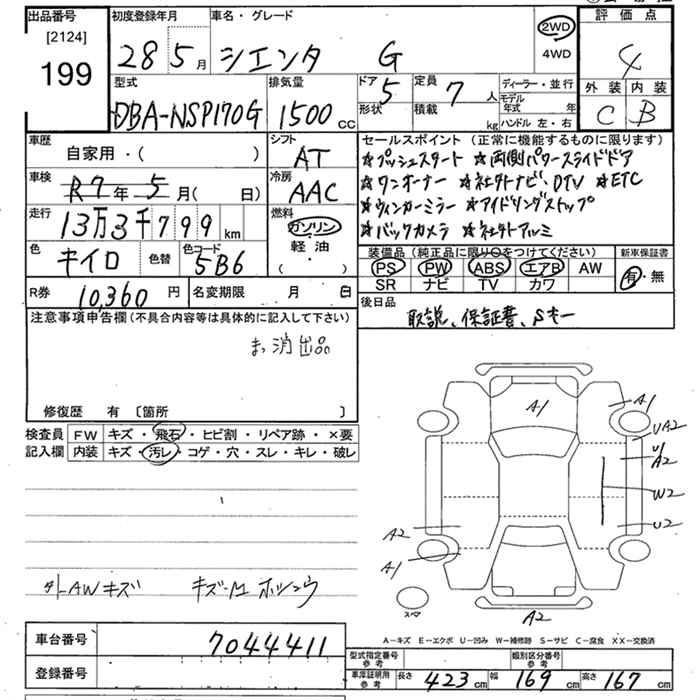 出品番号 初度登録年月 車名・グレード 評価点
[2124]
199
28 5月 シエンタ G 2WD 4WD 4
型式 排気量 ドア 5 形状 定員 7人 積載 kg ディーラー・並行 外装 内装
DBA-NSP170G 1500cc モデル年式 年 ハンドル 左・右 C B
車歴 シフト セールスポイント (正常に機能するものに限ります)
自家用・( ) AT ★プッシュスタート ★両側パワースライドドア
車検 冷房 ★ワンオーナー ★社外ナビ、DTV ★ETC
R7年5月( 日) AAC ★ウィンカーミラー ★アイドリングストップ
走行 燃料 ★バックカメラ ★社外アルミ
13万3千799km ガソリン
色 色替 色コード 軽油 装備品 (純正品に限り○をつけてください) 新車保証書
キイロ 5B6 ・( ) PS PW ABS エアB AW 有・無
SR ナビ TV カワ
R券 10,360円 名変期限 月 日 後日品
取説、保証書、Sキー
注意事項申告欄(不具合内容等は具体的に記入して下さい)
消出品
修復歴 有 〔箇所 〕
検査員 FW キズ・飛石・ヒビ割・リペア跡・×要
記入欄 内装 キズ・汚レ・コゲ・穴・スレ・キレ・破レ
A1
A1
UA2
U1
A2
W2
U2
A2
A1
A2
外AWキズ
スペア
A－キズ E－エクボ U－凹み W－補修跡 S－サビ C－腐食 XX－交換済
車台番号 7044411
型式指定番号 参考 類別区分番号 参考
登録番号 車庫証明用 参考 長さ 423cm 幅 169cm 高さ 167cm